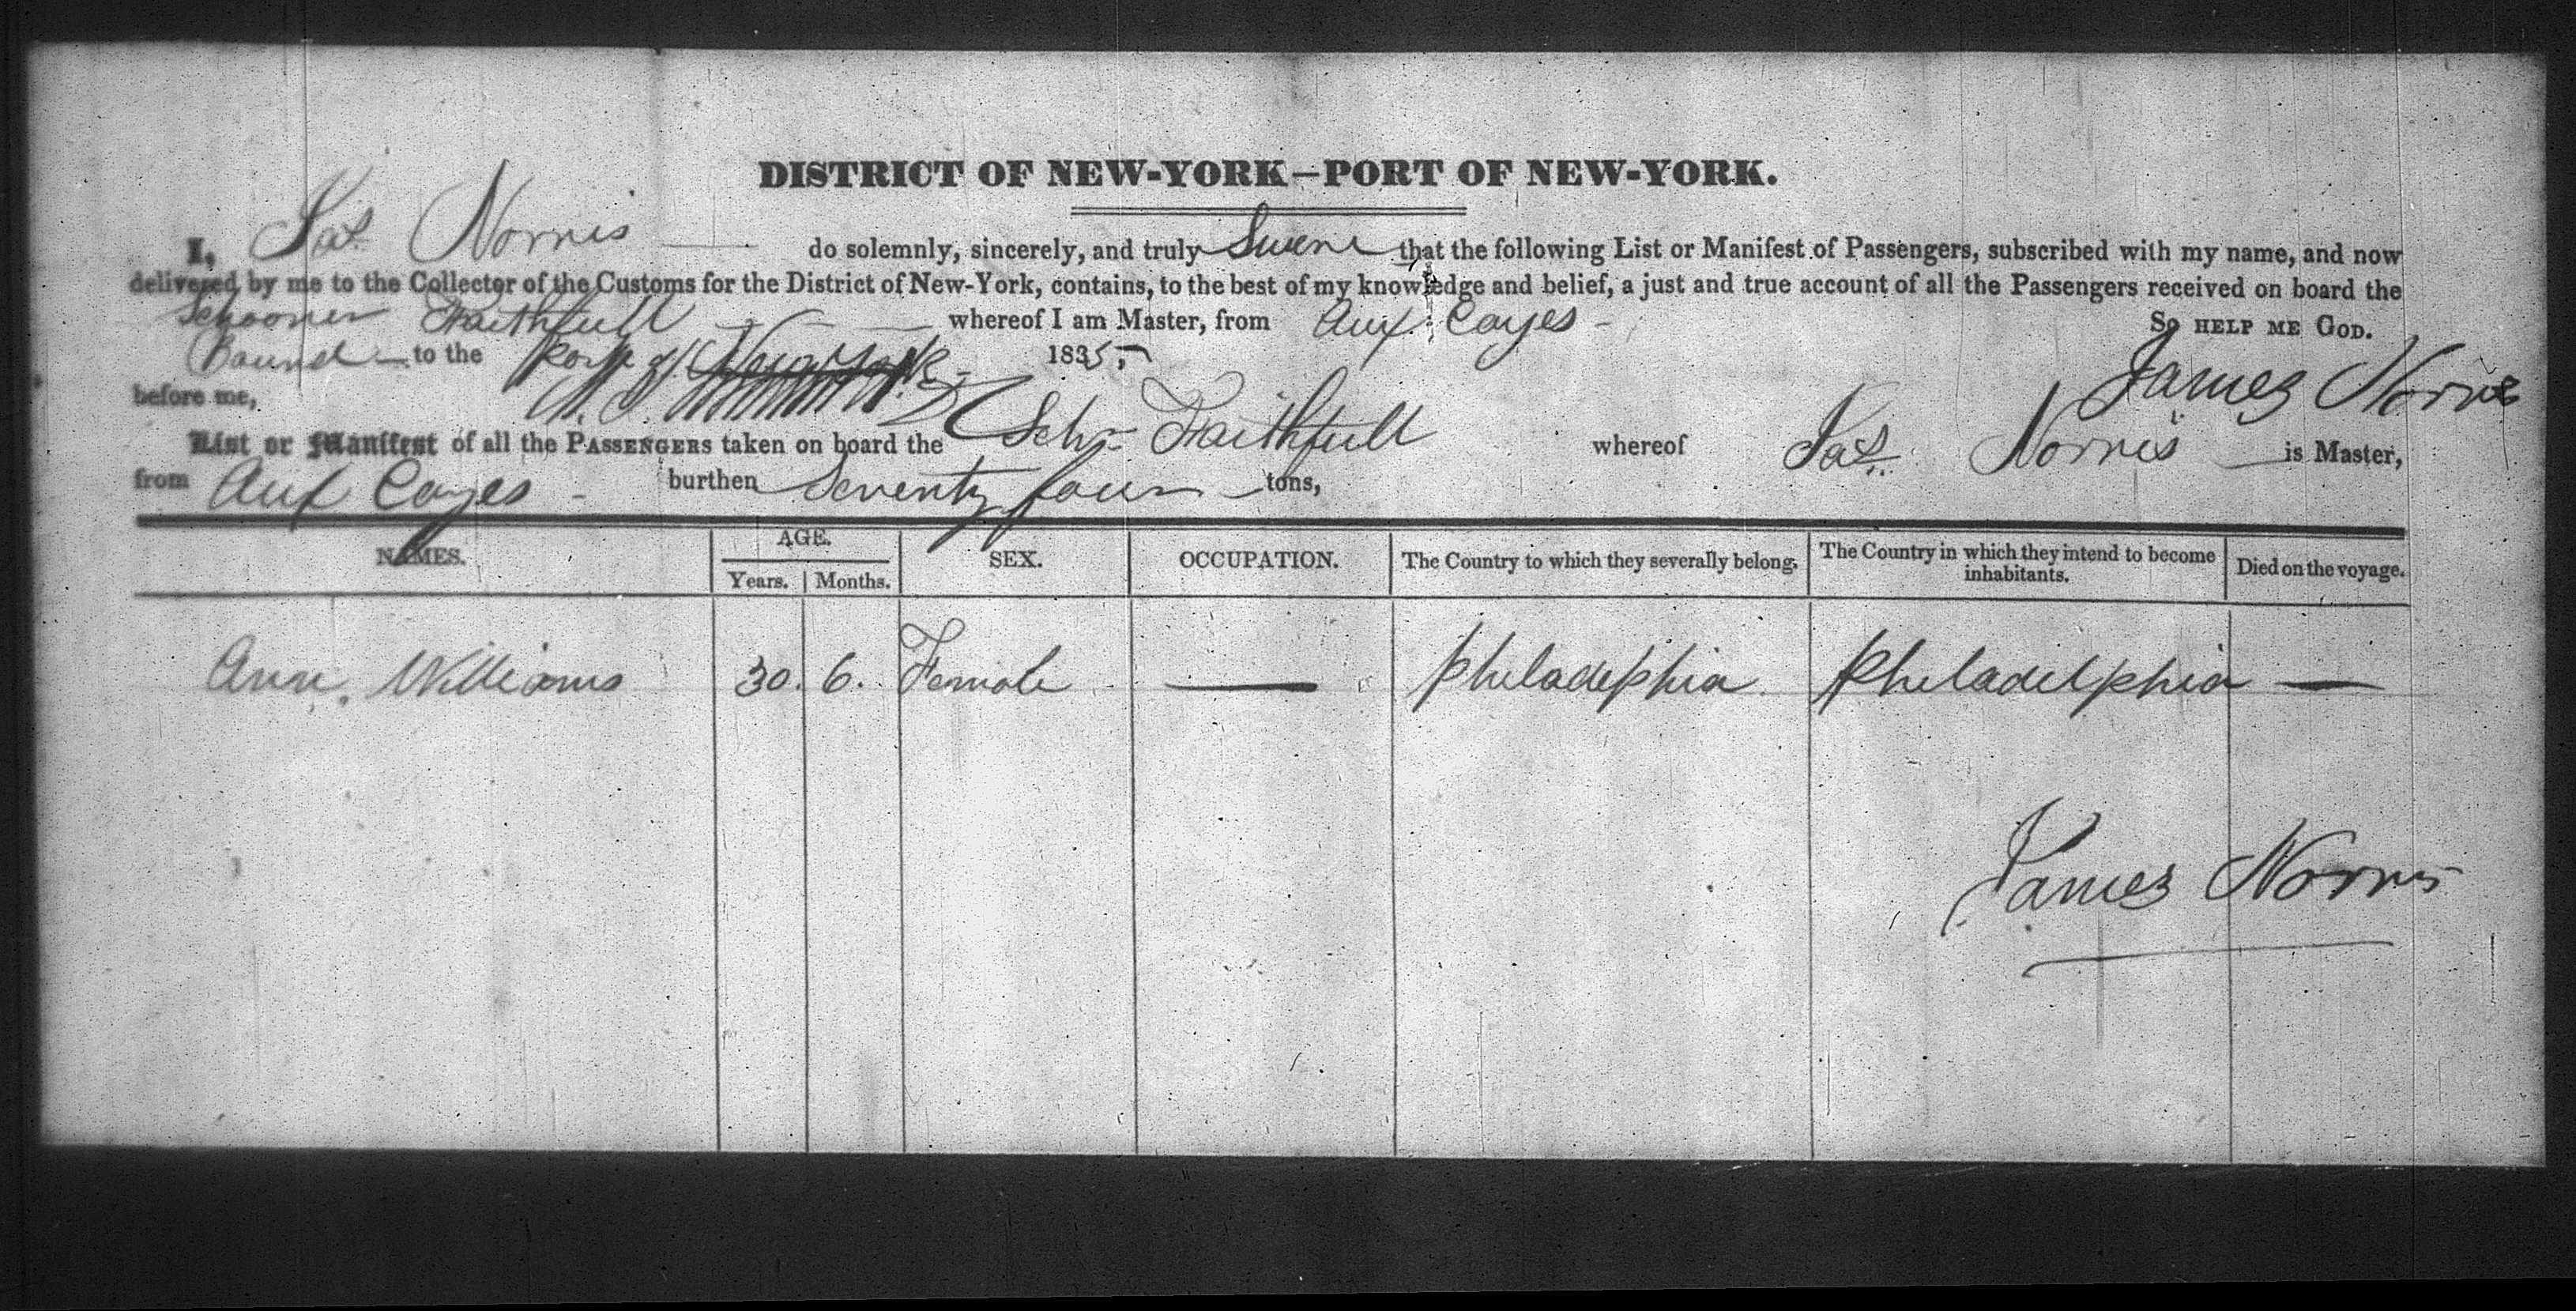 DISTRICT OF NEW-YORK—PORT OF NEW-YORK.
I, Jas. Norris do solemnly, sincerely, and truly Swear that the following List or Manifest of Passengers, subscribed with my name, and now
delivered by me to the Collector of the Customs for the District of New-York, contains, to the best of my knowledge and belief, a just and true account of all the Passengers received on board the
Schooner Faithfull whereof I am Master, from Aux Cayes - So HELP ME GOD.
Bound to the Port of New York 1835,
James Norris
before me,
List or Manifest of all the PASSENGERS taken on board the Schr Faithfull whereof Jas. Norris is Master,
from Aux Cayes - burthen Seventy four tons,
NAMES. AGE. Years. Months. SEX. OCCUPATION. The Country to which they severally belong. The Country in which they intend to become inhabitants. Died on the voyage.
Ann. Williams 30. 6. Female — Philadephia. Philadelphia —
James Norris